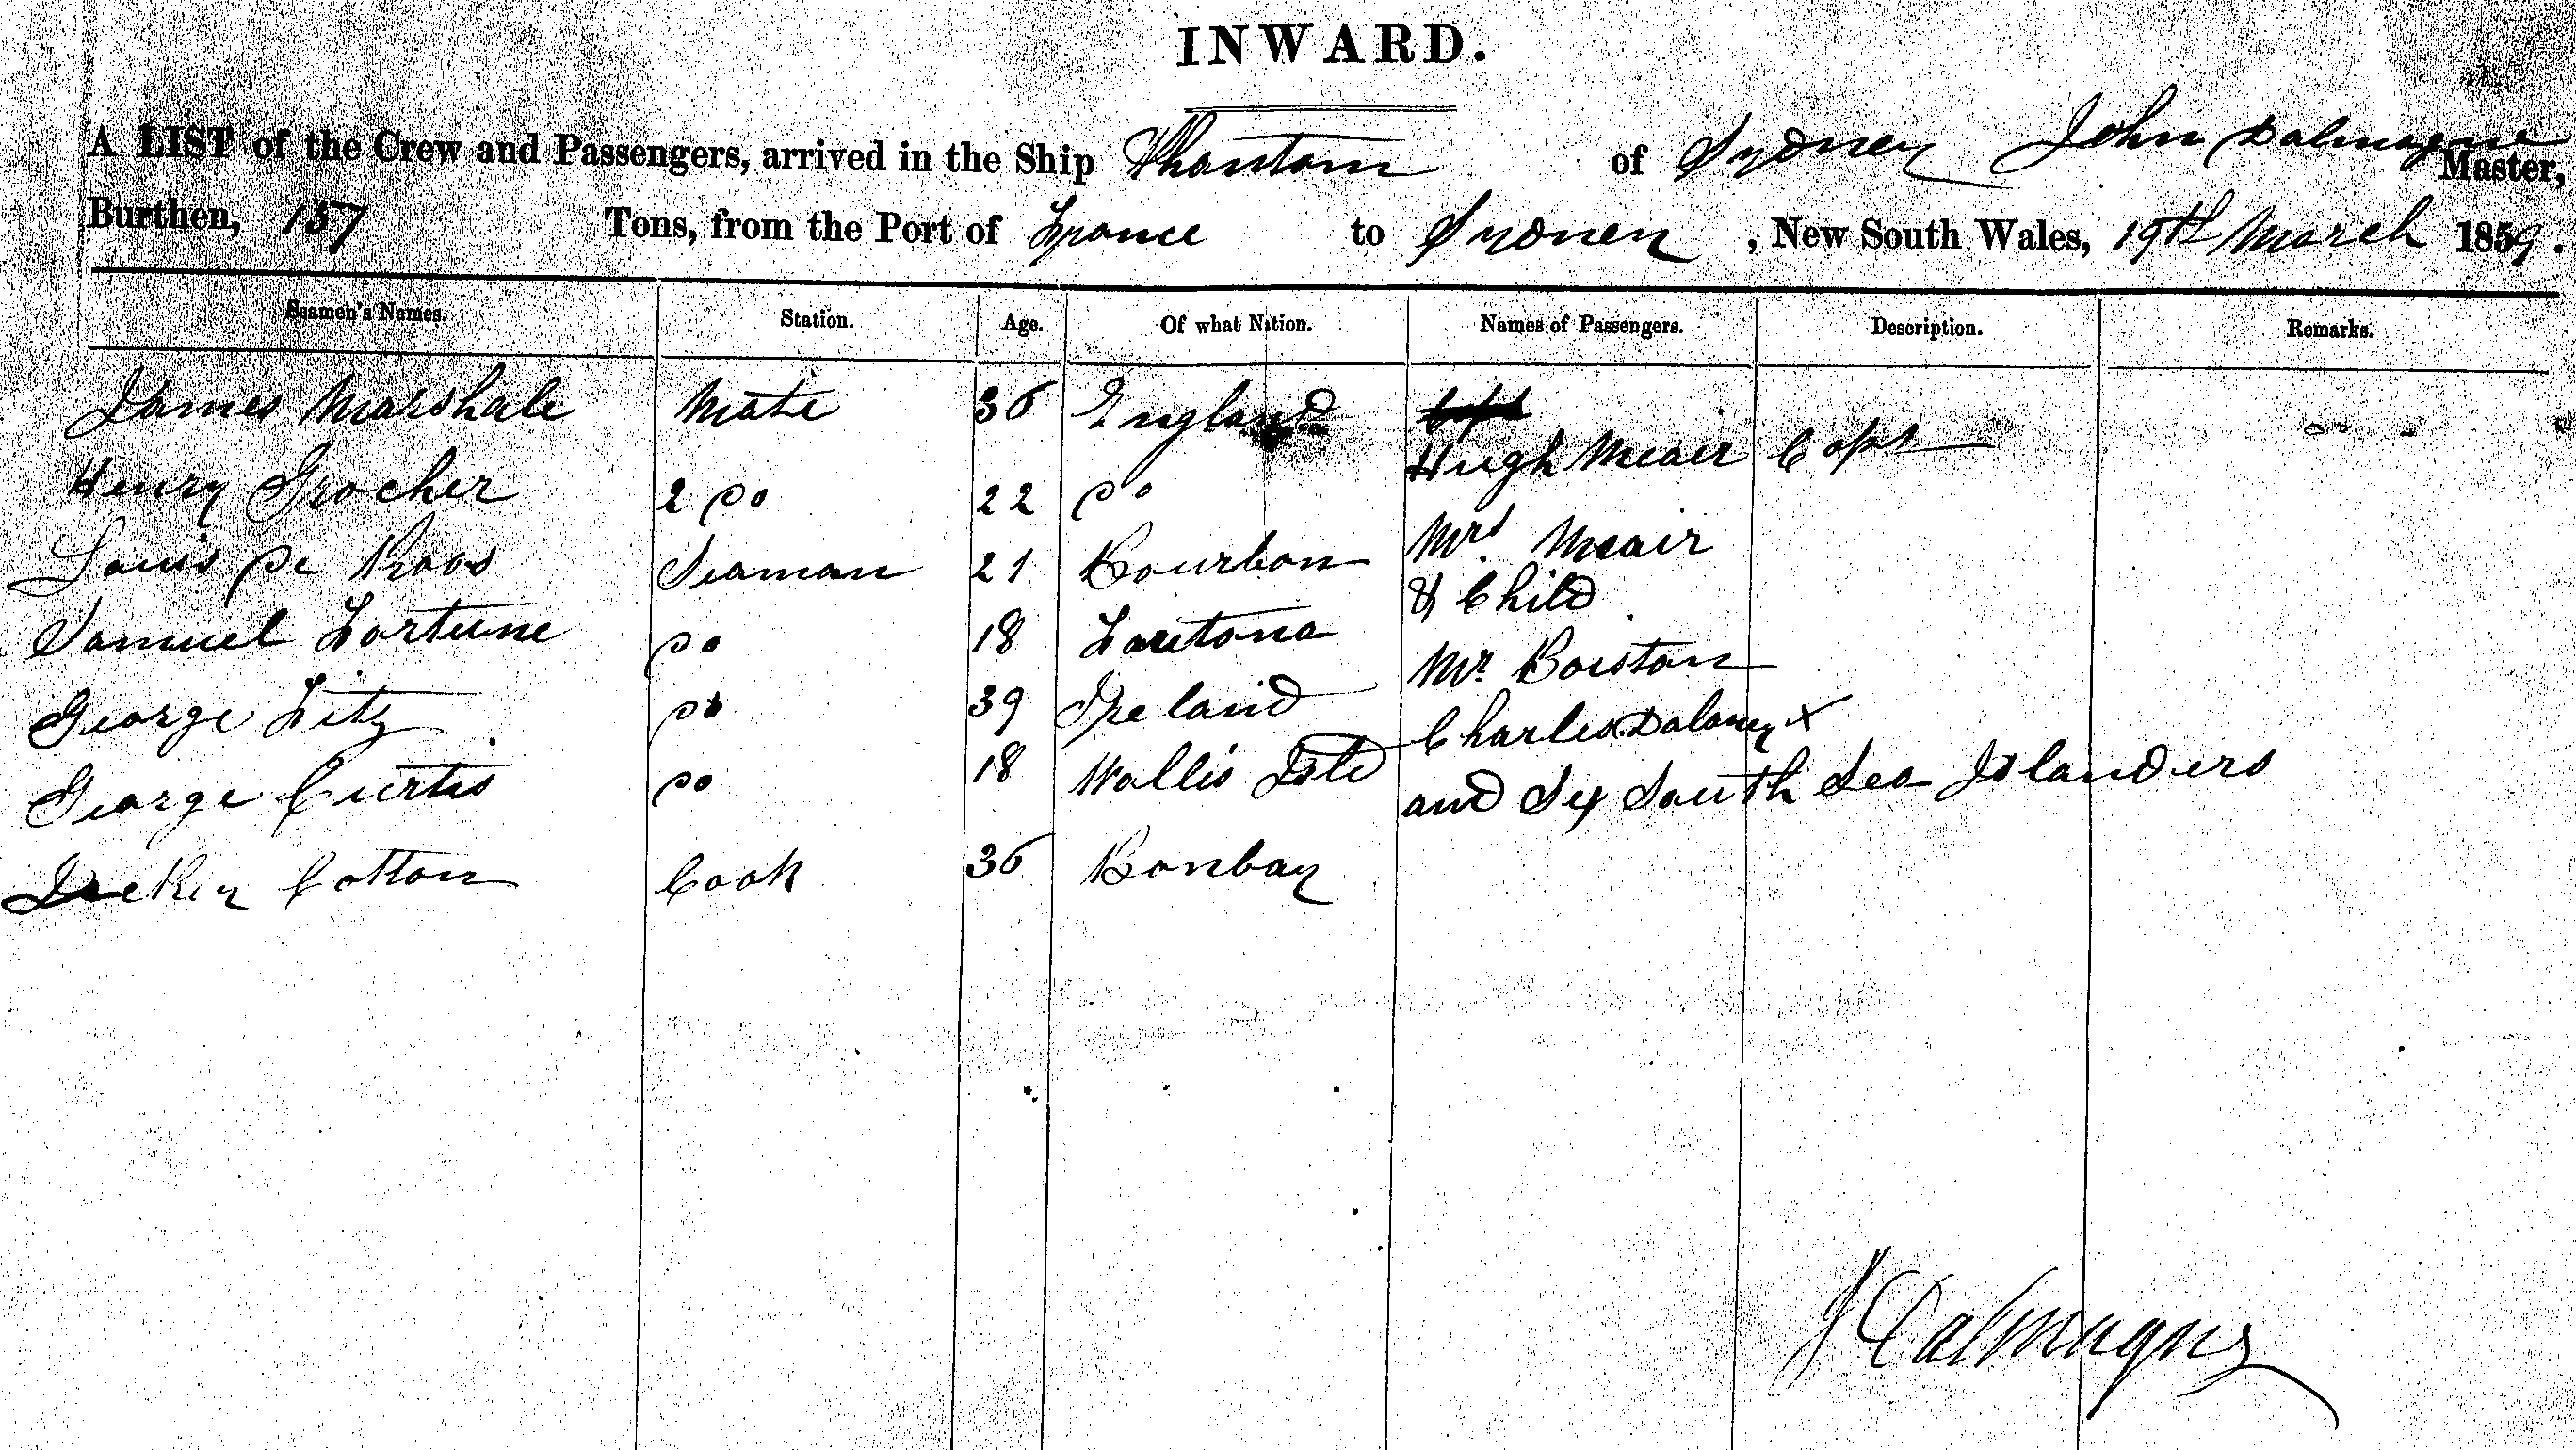 INWARD.
A LIST of the Crew and Passengers, arrived in the Ship Phantom of Sydney John Dalmagne Master,
Burthen, 137 Tons, from the Port of France to Sydney, New South Wales, 19th March 1859.
Seamen's Names. Station. Age. Of what Nation. Names of Passengers. Description. Remarks.
James Marshale Mate 36 England
Hugh Meair Capt
Henry Grocher 2 Do 22 Do
Mrs. Meair
Louis De Roos Seaman 21 Bourbon
& Child
Samuel Fortune Do 18
Mr. Boiston
George Fitz Do 39 Ireland
Charles Dalaney x
George Curtis Do 18 Wallis Isld
and Six South Sea Islanders
Cotton Cook 36 Bonbay
J Dalmagne